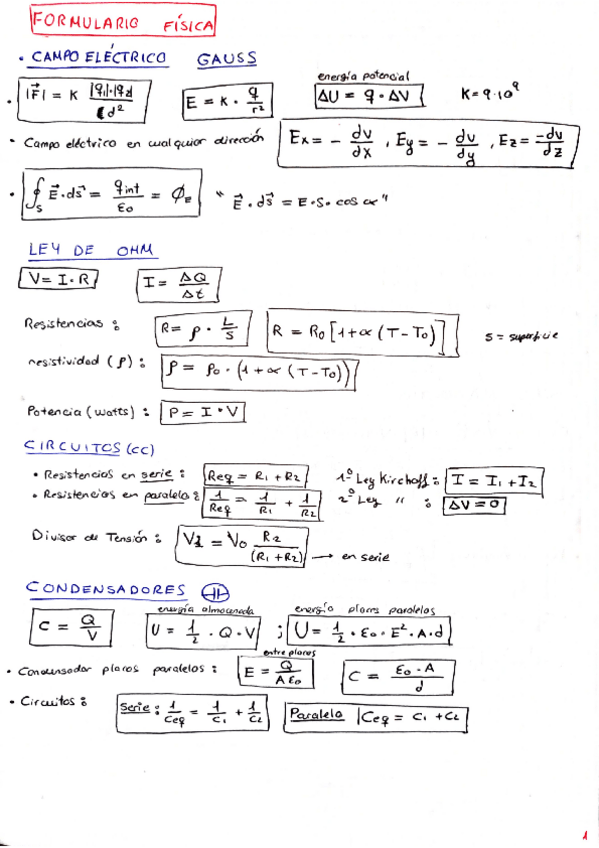 FORMULARIO FÍSICA
• CAMPO ELÉCTRICO GAUSS
energía potencial
• |F⃗| = K |q1|·|q2| / d² E = K · q / r² ΔU = q · ΔV K = 9·10⁹
• Campo eléctrico en cualquier dirección Ex = - dv/dx , Ey = - dv/dy , Ez = -dv/dz
• ∮s E⃗·ds⃗ = qint / εo = ΦE " E⃗ · ds⃗ = E·S·cos α "
LEY DE OHM
V = I·R I = ΔQ / Δt
Resistencias : R = ρ · L/S R = Ro [1+α (T-To)] S = superficie
resistividad (ρ) : ρ = ρo · (1+α (T-To))
Potencia (watts) : P = I · V
CIRCUITOS (CC)
• Resistencias en serie : Req = R1 + R2 1º Ley Kirchoff : I = I1 + I2
• Resistencias en paralelo : 1/Req = 1/R1 + 1/R2 2º Ley " : ΔV = 0
Divisor de Tensión : = Vo R2 / (R1 + R2) → en serie
CONDENSADORES
energía almacenada energía placas paralelas
C = Q/V U = 1/2 · Q · V ; U = 1/2 · εo · E² · A · d
entre placas
• Condensador placas paralelas : E = Q / A εo C = εo · A / d
• Circuitos : Serie : 1/Ceq = 1/C1 + 1/C2 Paralelo Ceq = C1 + C2
1